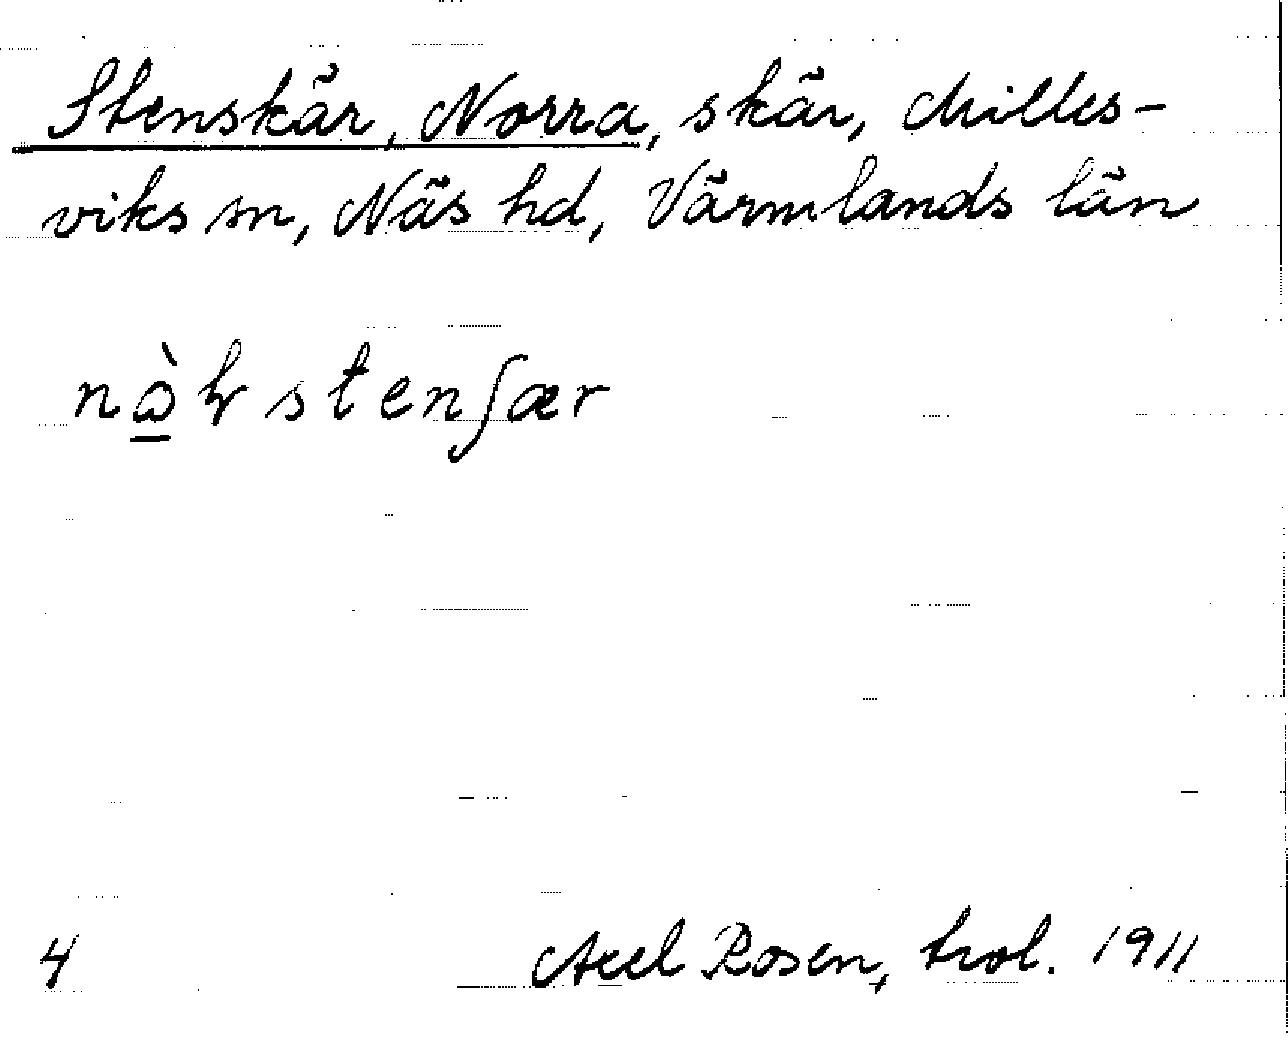 Stenskär, Norra, skär, Milles-
viks sn, Näs hd, Värmlands län
nò̱ꝶ stenʃær
4 Axel Rosen, trol. 1911